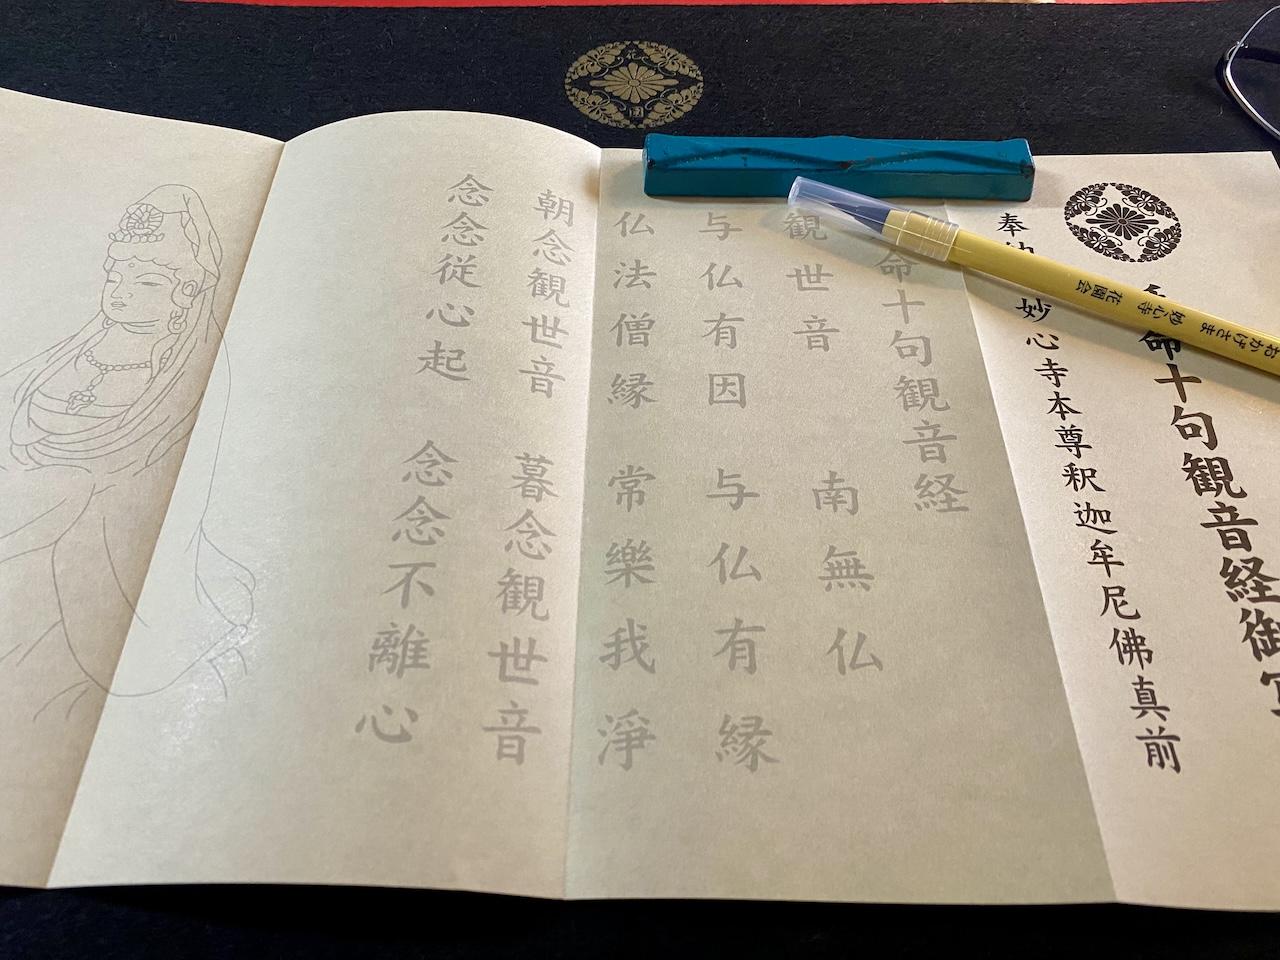 命十句観音経御
奉納 妙心寺本尊釈迦牟尼佛真前
命十句観音経
観世音 南無仏
与仏有因 与仏有縁
仏法僧縁 常樂我淨
朝念観世音 暮念観世音
念念従心起 念念不離心
おかげさま 妙心寺 花園会
花
園